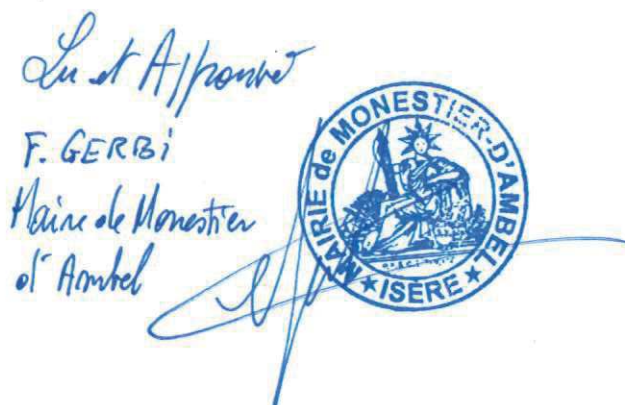 Lu et Approuvé
F. GERBI
Maire de Monestier
d'Ambel
MAIRIE de MONESTIER-D'AMBEL
★ ISÈRE ★